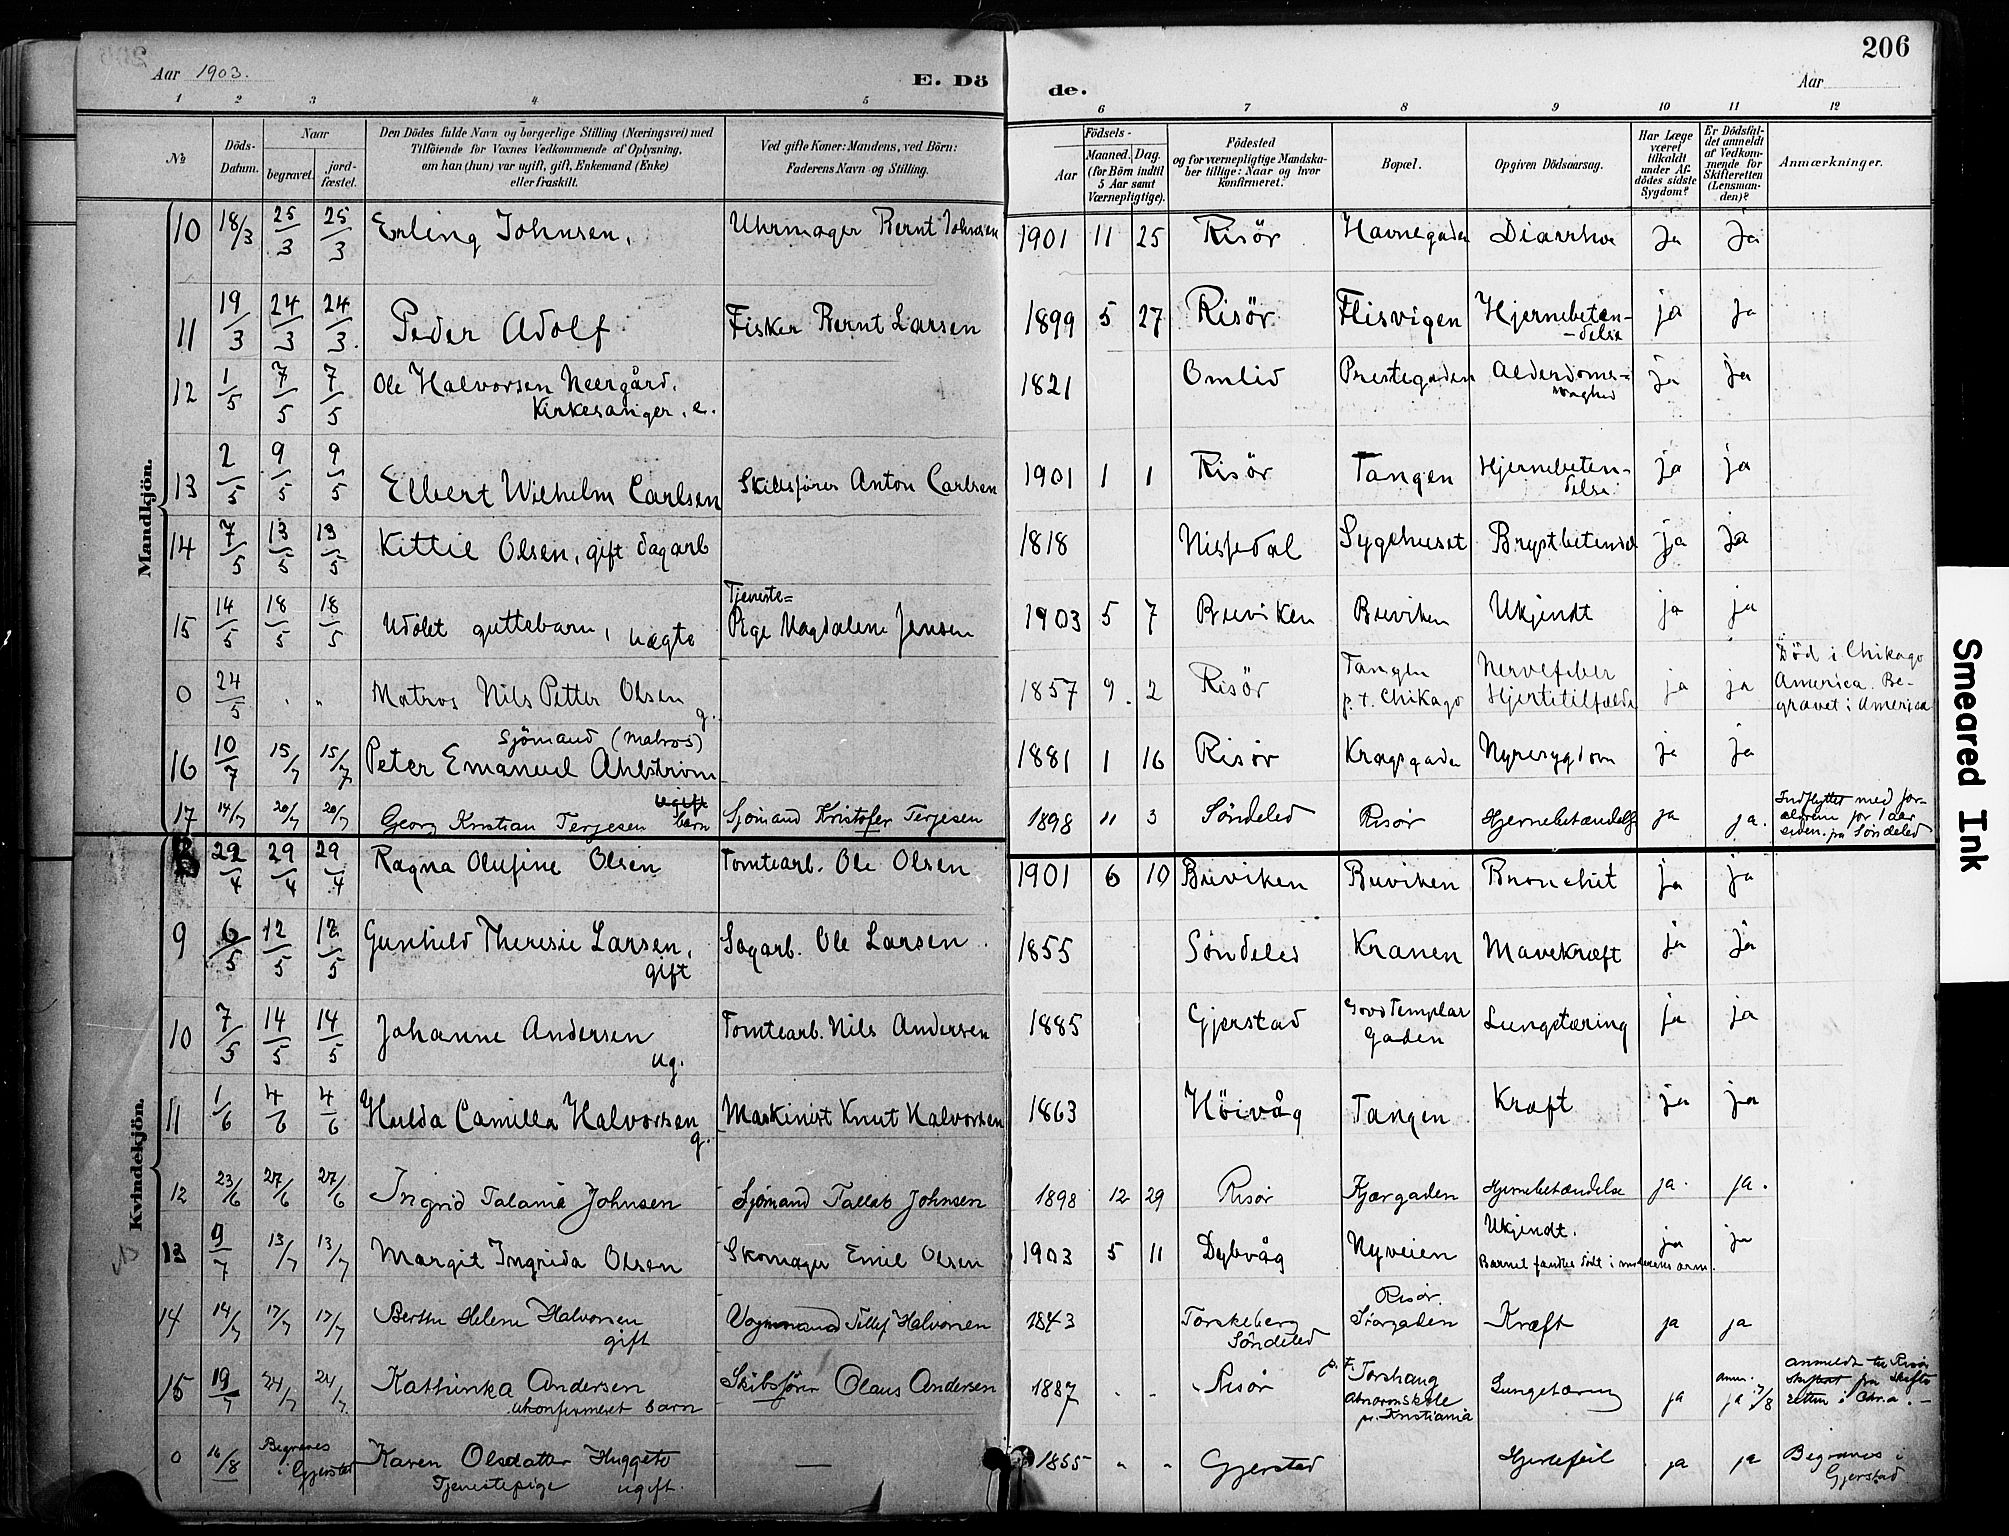 206
Aar 1903.
E. Dö
de.
Aar
1 2 3 4 5 6 7 8 9 10 11 12
№
Döds-Datum.
Naar
begravet.
jord-fæstet.
Den Dödes fulde Navn og borgerlige Stilling (Næringsvei) med
Tilföiende for Voxnes Vedkommende af Oplysning,
om han (hun) var ugift, gift, Enkemand (Enke)
eller fraskilt.
Ved gifte Koner: Mandens, ved Börn:
Faderens Navn og Stilling.
Födsels-
Aar
Maaned. Dag.
(for Börn indtil
5 Aar samt
Værnepligtige).
Födested
og for værnepligtige Mandska-
ber tillige: Naar og hvor
konfirmeret.
Bopæl.
Opgiven Dödsaarsag.
Har Læge
været
tilkaldt
under Af-
dödes sidste
Sygdom?
Er Dödsfal-
det anmeldt
af Vedkom-
mende for
Skifteretten
(Lensman-
den)?
Anmærkninger.
Mandkjön.
10 18/3 25/3 25/3 Erling Johnsen. Uhrmager Bernt Johnsen 1901 11 25 Risör Havnegaden Diarrhoe Ja Ja
11 19/3 24/3 24/3. Peder Adolf Fisker Bernt Larsen 1899 5 27 Risør Flisvigen Hjernebeten-
-delse ja ja
12 1/5 7/5 7/5 Ole Halvorsen Neergård.
Kirkesanger. e. 1821 Omlid Prestegaden Alderdoms-
svaghed ja ja
13 2/5 9/5 9/5 Elbert Wilhelm Carlsen Skibsfører Anton Carlsen 1901 1 1 Risør Tangen Hjernebeten-
delse ja ja
14 7/5 13/5 13/5 Kittil Olsen, gift dagarb 1818 Nissedal Sygehuset Brystbetendelse ja ja
15 14/5 18/5 18/5 Udöbt guttebarn, uægte Tjeneste=
Pige Magdalene Jensen 1903 5 7 Buviken Buviken Ukjendt ja ja
0 24/5 " " Matros Nils Petter Olsen g. 1857 9 2 Risør Tangen
p.t. Chikago Nervefeber
Hjertetilfælde ja ja Död i Chikago
America. Be-
gravet i America
16 10/7 15/7 15/7 Sjömand (Matros)
Peter Emanuel Ahlstrøm 1881 1 16 Risør Kragsgaden Nyresygdom ja ja
17 14/7 20/7 20/7 Georg Kristian Terjesen ugift
barn Sjømand Kristofer Terjesen 1898 11 3 Søndeled Risør Hjernebetændelse ja ja. Indflyttet med for-
ældrene for 1 aar
siden fra Søndeled
Kvindekjön.
8 22/4 29/4 29/4 Ragna Olufine Olsen Tomtearb. Ole Olsen 1901 6 10 Buviken Buviken Bronchit ja ja
9 6/5 12/5 12/5 Gunhild Theresie Larsen.
gift Sagarb. Ole Larsen. 1855 Søndeled Kranen Mavekræft ja ja
10 7/5 14/5 14/5 Johanne Andersen
ug. Tomtearb. Nils Andersen 1885 Gjerstad Good Templar
Gaden Lungetæring ja ja
11 1/6 4/6 4/6 Hulda Camilla Halvorsen
g. Maskinist Knut Halvorsen 1863 Høivåg Tangen Kræft ja ja
12 23/6 27/6 27/6 Ingrid Talania Johnsen Sjømand Tallak Johnsen 1898 12 29 Risør Kjærgaden Hjernebetændelse ja. ja.
13 9/7 13/7 13/7 Margit Ingrida Olsen Skomager Emil Olsen 1903 5 11 Dybvåg Nyveien Ukjendt.
Barnet fandtes dödt i moderens arm. ja ja
14 14/7 17/7 17/7 Berthe Helene Halvorsen
gift Vognmand Tellef Halvorsen 1843 Torskeberg
Søndeled Risør.
Storgaden Kræft ja ja
15 19/7 24/7 24/7. Kathinka Andersen
ukonfirmeret barn Skibsfører Olaus Andersen 1887 " " Risør p. t. Torshaug
Abnormskole
pr. Kristiania Lungetæring ja anm.
ja 17/8 anmeldt til Risør
fra Skifte
retten i Chr.a. -
0 16/8 Begraves
i Gjerstad Karen Olsdatter Huggeto
Tjenestepige ugift. — 1855 " " Gjerstad Hjertefeil ja ja Begraves i
Gjerstad
Smeared Ink